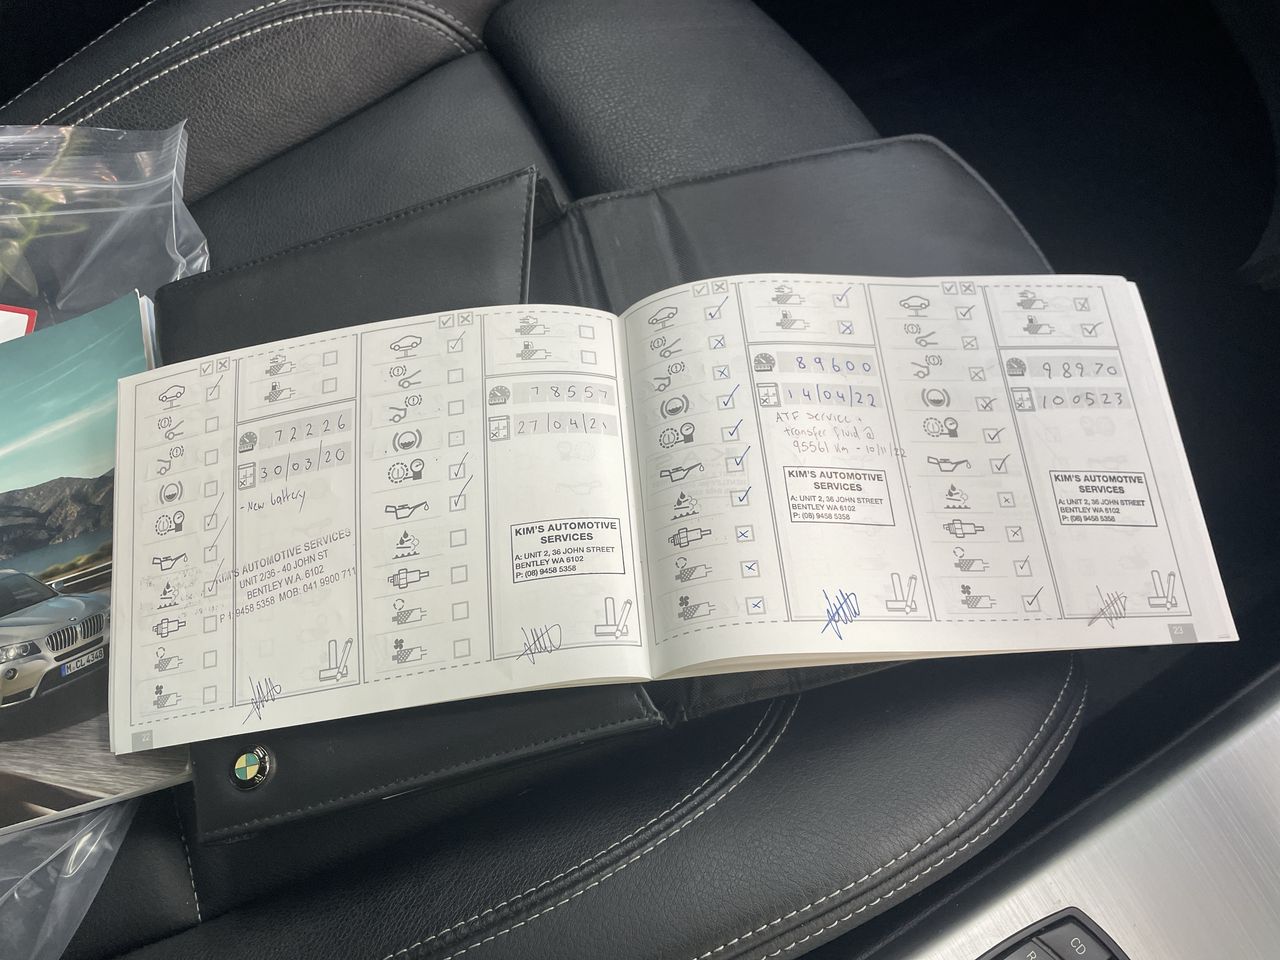 72226
30/03/20
- New battery
KIM'S AUTOMOTIVE SERVICES
UNIT 2/36 - 40 JOHN ST
BENTLEY W.A. 6102
PH: 9458 5358 MOB: 041 9900 711
22
78557
27/04/21
KIM'S AUTOMOTIVE
SERVICES
A: UNIT 2, 36 JOHN STREET
BENTLEY WA 6102
P: (08) 9458 5358
89600
14/04/22
ATF service +
transfer fluid @
95561 km - 10/11/22
KIM'S AUTOMOTIVE
SERVICES
A: UNIT 2, 36 JOHN STREET
BENTLEY WA 6102
P: (08) 9458 5358
98970
100523
KIM'S AUTOMOTIVE
SERVICES
A: UNIT 2, 36 JOHN STREET
BENTLEY WA 6102
P: (08) 9458 5358
23
M·CL 4348
CD